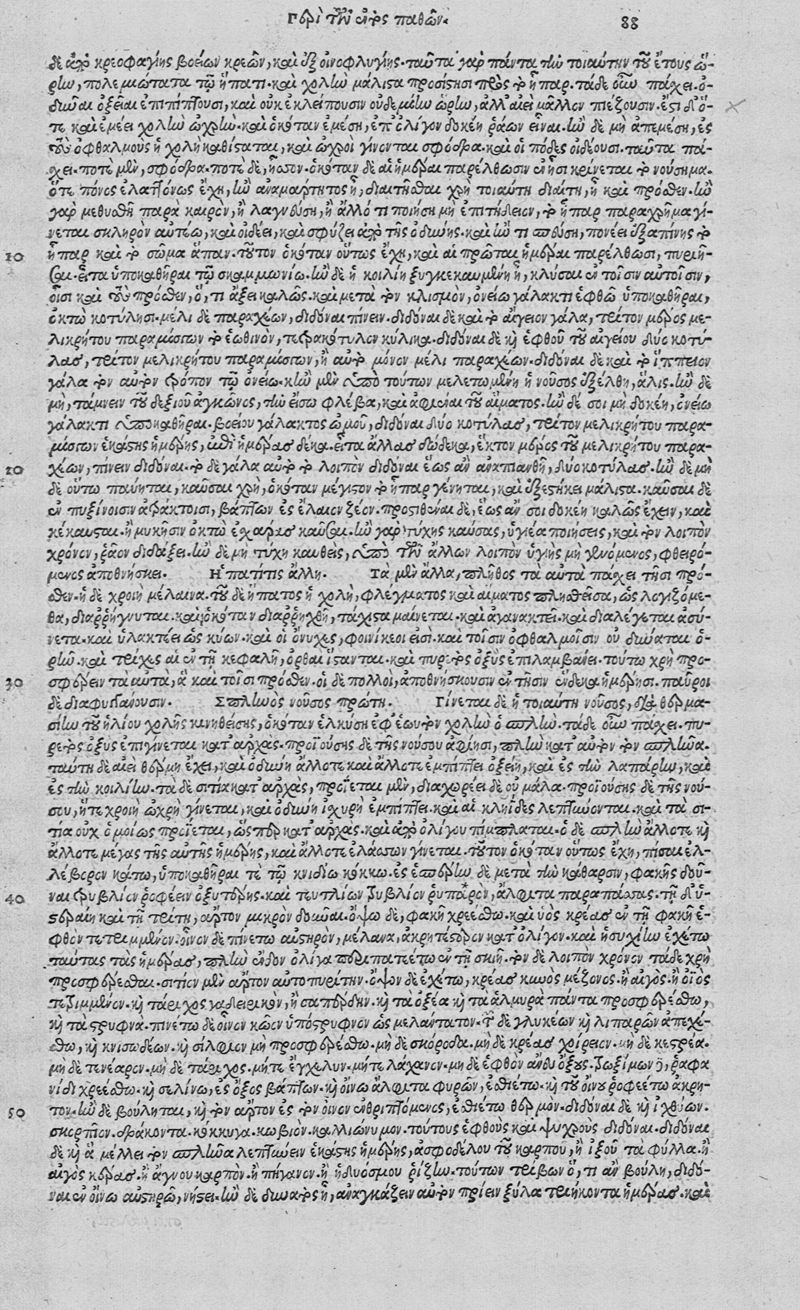 Περὶ τῶν ἐντὸς παθῶν. 88
δὲ ἀπὸ κρεοφαγίης βοείων κρεῶν, καὶ ἐξ οἰνοφλυγίης. ταῦτα γὰρ πάντα τὴν τοιαύτην τοῦ ἔτους ὥ-
ρην, πολεμιώτατα τῷ ἥπατι. καὶ χολὴν μάλιστα προσίστησι πρὸς τὸ ἧπαρ. τάδε οὖν πάσχει. ὀ-
δύναι ὀξεῖαι ἐπιπίπτουσι, καὶ οὐκ ἐκλείπουσιν οὐδεμίην ὥρην, ἀλλ' αἰεὶ μᾶλλον πιέζουσιν. ἔστι δ' ὅ-
τε καὶ ἐμέει χολὴν ὠχρήν. καὶ ὁκόταν ἐμέσῃ, ἐπ' ὀλίγον δοκέει ῥάων εἶναι. ἢν δὲ μὴ ἀπεμέσῃ, ἐς
τοὺς ὀφθαλμοὺς ἡ χολὴ καθίσταται, καὶ ὠχροὶ γίνονται σφόδρα. καὶ οἱ πόδες οἰδέουσι. ταῦτα πά-
σχει. ποτὲ μὲν, σφόδρα. ποτὲ δὲ, ἧσσον. ὁκόταν δὲ αἱ ἡμέραι παρέλθωσιν ἐν ᾗσι κρίνεται τὸ νούσημα.
ὅτε πόνος ἐλασσόνως ἔχῃ, ἢν ἀναμάρτητος ᾖ, διαιτῆσθαι χρὴ τοιαύτῃ διαίτῃ, ᾗ καὶ πρόσθεν. ἢν
γὰρ μεθυσθῇ παρὰ καιρὸν, ἢ λαγνεύσῃ, ἢ ἄλλό τι ποιήσῃ μὴ ἐπιτήδειον, τὸ ἧπαρ παραχρῆμα γί-
νεται σκληρὸν αὐτέῳ, καὶ οἰδέει, καὶ σφύζει ἀπὸ τῆς ὀδύνης. καὶ ἤν τι σπεύσῃ, πονέει ἐξαπίνης τὸ
10 ἧπαρ καὶ τὸ σῶμα ἅπαν. τοῦτον ὁκόταν οὕτως ἔχῃ, καὶ αἱ πρῶται ἡμέραι παρέλθωσι, πυριῆ-
σαι. εἶτα ὑποκαθῆραι τῷ σκαμμωνίῳ. ἢν δὲ ἡ κοιλίη ξυγκεκαυμένη ᾖ, κλύσαι ἐν τοῖσιν αὐτοῖσιν,
οἷσι καὶ τοὺς πρόσθεν, ὅ,τι ἄξει καλῶς. καὶ μετὰ τὸν κλυσμὸν, ὀνείῳ γάλακτι ἑφθῷ ὑποκαθῆραι,
ὀκτὼ κοτύλῃσι. μέλι δὲ παραχέων, διδόναι πίνειν. διδόναι δὲ καὶ τὸ αἴγειον γάλα, τρίτον μέρος με-
λικρήτου παραμίσγων τὸ ἑωθινὸν, τετρακότυλον κύλικα. διδόναι δὲ κὴ ἑφθοῦ τοῦ αἰγείου δύο κοτύ-
λας, τρίτον μελικρήτου παραμίσγων, ἢ αὐτὸ μόνον μέλι παραχέων. διδόναι δὲ καὶ τὸ ἵππειον
γάλα τὸν αὐτὸν τρόπον τῷ ὀνείῳ. κἢν μὲν ὑπὸ τούτων μελετωμένῃ ἡ νοῦσος ἐξέλθῃ, ἅλις. ἢν δὲ
μὴ, τάμνειν τοῦ δεξιοῦ ἀγκῶνος, τὴν εἴσω φλέβα, καὶ ἀφιέναι τοῦ αἵματος. ἢν δέ σοι μὴ δοκέῃ, ὀνείῳ
γάλακτι ὑποκαθῆραι. βοείου γάλακτος ὠμοῦ, διδόναι δύο κοτύλας, τρίτον μελικρήτου παρα-
μίσγων ἑκάστης ἡμέρης, ἐπὶ ἡμέρας δέκα. εἶτα ἄλλας δώδεκα, ἕκτον μέρος τοῦ μελικρήτου παρα-
20 χέων, πίνειν διδόναι. τὸ δὲ γάλα αὐτὸ τὸ λοιπὸν διδόναι ἕως ἂν ἀναπιανθῇ, δύο κοτύλας. ἢν δὲ μὴ
δὲ οὕτω παύηται, καῦσαι χρὴ, ὁκόταν μέγιστον τὸ ἧπαρ γένηται, καὶ ἐξεστήκει μάλιστα. καῦσαι δὲ
ἐν πυξίνοισιν ἀτράκτοισι, βάπτων ἐς ἔλαιον ζέον. προστιθέναι δὲ, ἕως ἄν σοι δοκέῃ καλῶς ἔχειν, καὶ
κέκαυσται. ἢ μύκησιν ὀκτὼ ἐσχάρας καῦσαι. ἢν γὰρ τύχῃς καύσας, ὑγιέα ποιήσεις, καὶ τὸν λοιπὸν
χρόνον, ῥᾷον διάξει. ἢν δὲ μὴ τύχῃ καυθεὶς, ὑπὸ τῶν ἄλλων λοιπὸν ὑγιὴς μὴ γενόμενος, φθειρό-
μενος ἀποθνήσκει. Ἡπατῖτις ἄλλη. Τὰ μὲν ἄλλα, πλῆθος τὰ αὐτὰ πάσχει τῇσι πρό-
σθεν. ἡ δὲ χροιὴ μέλαινα. τοῦ δὲ ἥπατος ἡ χολὴ, φλέγματος καὶ αἵματος πλησθεῖσα, ὡς λογιζόμε-
θα, διαρρήγνυται. καὶ ὁκόταν διαρρηχθῇ, τάχιστα μαίνεται. καὶ ἀγανακτεῖ. καὶ διαλέγεται ἀσύ-
νετα. καὶ ὑλακτέει ὡς κύων. καὶ οἱ ὄνυχες, φοινίκεοί εἰσι. καὶ τοῖσιν ὀφθαλμοῖσιν οὐ δύναται ὁ-
ρῆν. καὶ τρίχες αἱ ἐν τῇ κεφαλῇ, ὀρθαὶ ἵστανται. καὶ πυρετὸς ὀξὺς ἐπιλαμβάνει. τούτῳ χρὴ προ-
30 σφέρειν ταῦτα, ἃ καὶ τοῖσι πρόσθεν. οἱ δὲ πολλοὶ, ἀποθνήσκουσιν ἐν τῇσιν ἕνδεκα ἡμέρῃσι. παῦροι
δὲ διαφυγγάνουσιν. Σπληνὸς νοῦσος πρώτη. Γίνεται δὲ ἡ τοιαύτη νοῦσος, διὰ θερμα-
σίην τοῦ ἡλίου χολῆς κινηθείσης, ὁκόταν ἑλκύσῃ ἐφ' ἑωυτὸν χολὴν ὁ σπλήν. τάδε οὖν πάσχει. πυ-
ρετὸς ὀξὺς ἐπιγίνεται κατ' ἀρχάς. προϊούσης δὲ τῆς νούσου ἀφίησι, πλὴν κατ' αὐτὸν τὸν σπλῆνα.
ταύτῃ δὲ αἰεὶ θέρμη ἔχει, καὶ ὀδύνη ἄλλοτε καὶ ἄλλοτε ἐμπίπτει ὀξείη, καὶ ἐς τὴν λαπάρην, καὶ
ἐς τὴν κοιλίην. τὰ δὲ σιτία κατ' ἀρχὰς, προΐεται μὲν, διαχωρέει δὲ οὐ μάλα. προϊούσης δὲ τῆς νού-
σου, ἥ τε χροιὴ ὠχρὴ γίνεται, καὶ ὀδύνη ἰσχυρὴ ἐμπίπτει. καὶ αἱ κληΐδες λεπτύνονται. καὶ τὰ σι-
τία οὐχ ὁμοίως προΐεται, ὥσπερ κατ' ἀρχάς. καὶ ἀπὸ ὀλίγου πίμπλαται. ὁ δὲ σπλὴν ἄλλοτε κὴ
ἄλλοτε μέγας τῆς αὐτῆς ἡμέρης, καὶ ἄλλοτε ἐλάσσων γίνεται. τοῦτον ὁκόταν οὕτως ἔχῃ, πῖσαι ἐλ-
λέβορον κάτω, ὑποκαθῆραι τέ τῷ κνιδίῳ κόκκῳ. ἐς ἑσπέρην δὲ μετὰ τὴν κάθαρσιν, φακῆς δοῦ-
40 ναι τρυβλίον ῥοφέειν ὀξυτέρης. καὶ τευτλίων τρυβλίον ῥυπαρὸν, ἄλφιτα παραπάσας. τῇ δ' ὑ-
στεραίῃ καὶ τῇ τρίτῃ, ἄρτον μικρὸν δοῦναι. ὄψῳ δὲ, φακῇ χρεέσθω. καὶ ὑὸς κρέας ἐν τῇ φακῇ ἑ-
φθὸν τετμημένον. οἶνον δὲ πινέτω αὐστηρὸν, μέλανα, ἀκρητέστερον κατ' ὀλίγον. καὶ ἡσυχίην ἐχέτω
ταύτας τὰς ἡμέρας, πλὴν ἔνδον ὀλίγα περιπατείτω ἐν τῇ σκιῇ. τὸν δὲ λοιπὸν χρόνον τάδε χρὴ
προσφέρεσθαι. σιτίον μὲν ἄρτον αὐτοπυρίτην. ὄψον δὲ ἐχέτω, κρέας κυνὸς μέζονος. ἢ αἰγὸς. ἢ οἰὸς
τετμημένον. κὴ τάριχος γαδειρικὸν, ἢ σαπέρδην. κὴ τὰ ὀξέα κὴ τὰ ἁλμυρὰ πάντα προσφερέσθω,
κὴ τὰ στρυφνά. πινέτω δὲ οἶνον κῶον ὑπόστρυφνον ὡς μελάντατον. τῶν δὲ γλυκέων κὴ λιπαρῶν ἀπεχέ-
σθω, κὴ κνισωδέων. κὴ σίλφιον μὴ προσφερέσθω. μὴ δὲ σκόροδα. μὴ δὲ κρέας χοίρειον. μὴ δὲ κεστρέα.
μὴ δὲ τενέαρον. μὴ δὲ τάριχος. μήτε ἔγχελυν. μήτε λάχανον. μὴ δὲ ἑφθὸν ἄνευ ὄξους. τρωξίμων ᾗ, ῥαφα-
νίδι χρεέσθω. κὴ σελίνῳ, ἐς ὄξος βάπτων. κὴ οἴνῳ ἄλφιτα φυρῶν, ἐσθιέτω. κὴ τοῦ οἴνου ῥοφεέτω ἀκρη-
50 τον. ἢν δὲ βούληται, κὴ τὸν ἄρτον ἐς τὸν οἶνον ἐνθριπτόμενος, ἐσθιέτω θερμόν. διδόναι δὲ κὴ ἰχθύων.
σκορπίον. δράκοντα. κόκκυγα. κωβιὸν. καλλιώνυμον. τούτους ἑφθοὺς καὶ ψυχροὺς διδόναι. διδόναι
δὲ κὴ ἃ μέλλει τὸν σπλῆνα λεπτύνειν ἑκάστης ἡμέρης, ἀσφοδέλου τοῦ καρποῦ, ἢ ἰξοῦ τὰ φύλλα. ἢ
αἰγὸς κέρας. ἢ ἄγνου καρπὸν. ἢ πήγανον. ἢ ἡδυόσμου ῥίζην. τούτων τρίβων ὅ,τι ἂν βούλῃ, διδό-
ναι ἐν οἴνῳ αὐστηρῷ, νήστει. ἢν δὲ δυνατὸς ᾖ, ἀναγκάζειν αὐτὸν πρίειν ξύλα τριήκοντα ἡμέρας. καὶ